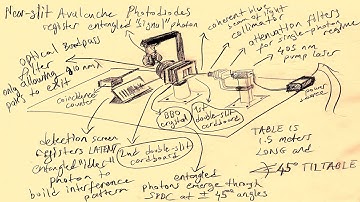 Non-slit Avalanche Photodiodes
register entangled "signal" photon
optical Bandpass
filter
only allowing 810 nm λ
pass to exit
coincidence
counter
coherent blue
beam of light
collimator
attenuation filters
for single-photon regime
405 nm
pump laser
power
source
BBO
crystal
1st
double-slit
cardboard
2nd double-slit
cardboard
detection screen
registers LATENT
entangled "idler"
photon to
build interference
pattern
entangled
photons emerge though
SPDC at ± 45° angles
TABLE is
1.5 meters
LONG and
± 45° TILTABLE